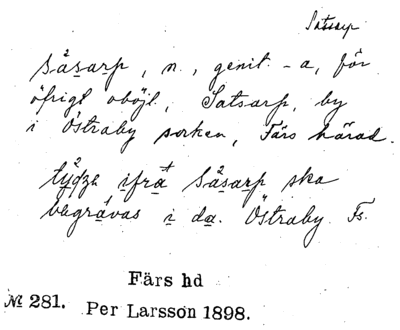 Satsarp
såsarp, n., genit. -a, för
öfrigt oböjl., Satsarp, by
i Östraby sorken, Färs härad.
ifra såsarp ska
begrávas i da. Östraby. Fs.
Färs hd
№ 281. Per Larsson 1898.